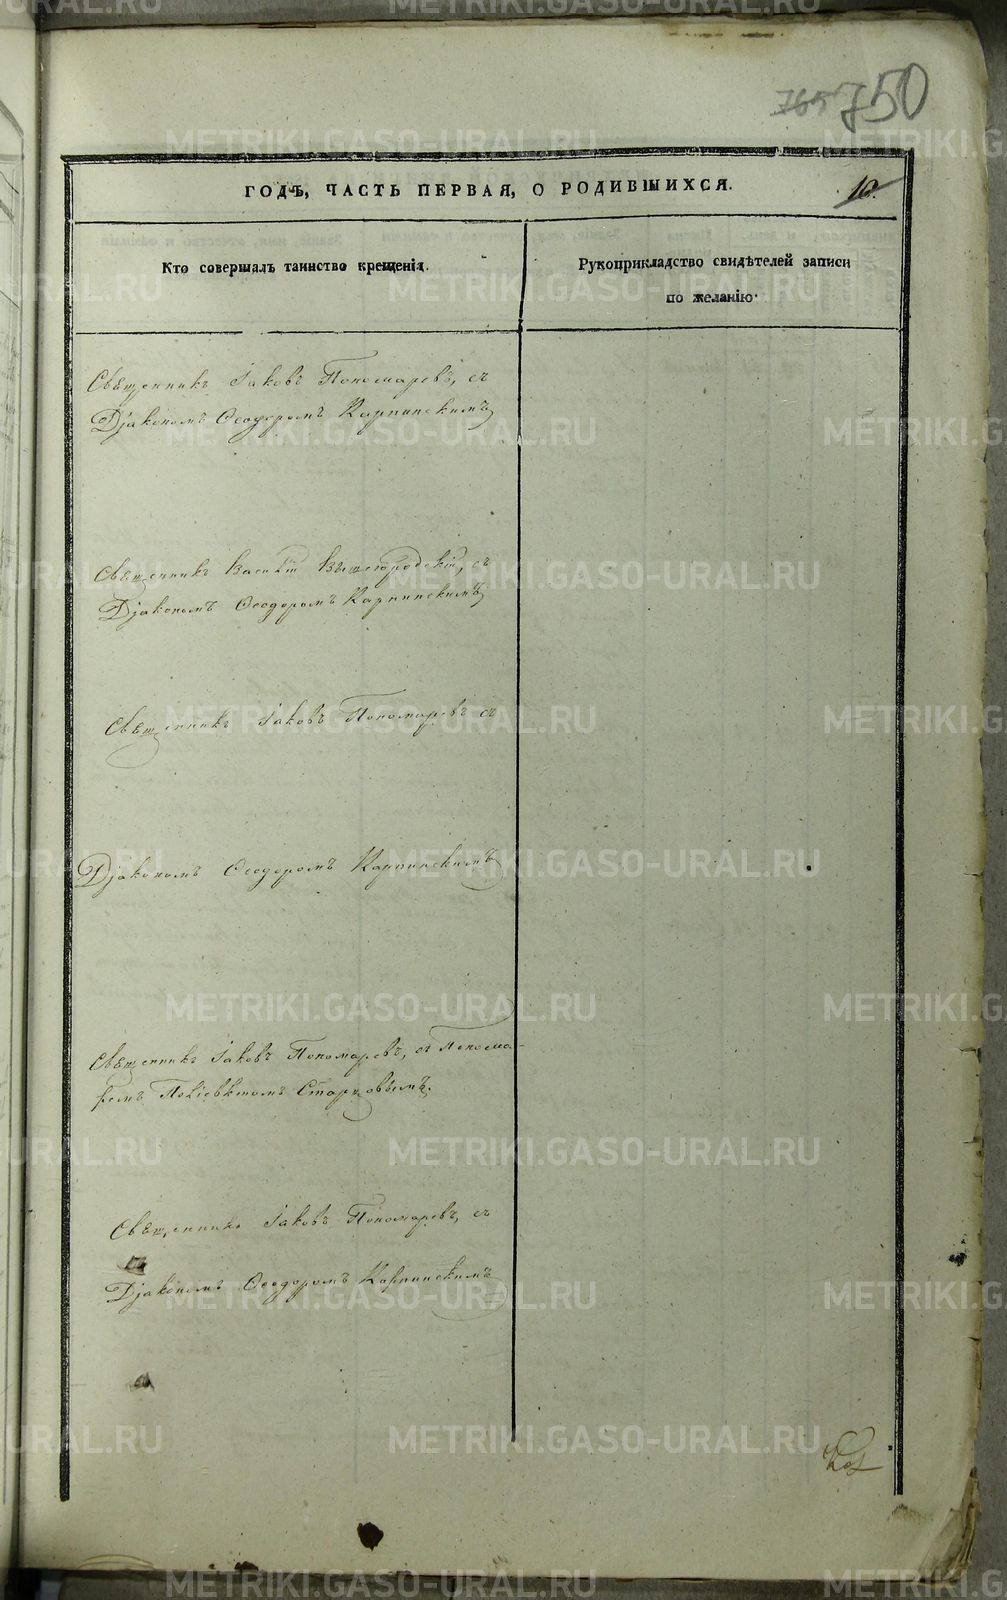 765 750
ГОДЪ, ЧАСТЬ ПЕРВАЯ, О РОДИВШИХСЯ.
10.
Кто совершалъ таинство крещенія.
Рукоприкладство свидѣтелей записи
по желанію.
Священникъ Іаковъ Пономаревъ, съ
Діакономъ Ѳеодоромъ Карпинскимъ
Священникъ Василій Вышегородскій, съ
Діакономъ Ѳеодоромъ Карпинскимъ
Священникъ Іаковъ Пономаревъ съ
Діакономъ Ѳеодоромъ Карпинскимъ
Священникъ Іаковъ Пономаревъ, съ Понома-
ремъ Старцовымъ.
Священникъ Іаковъ Пономаревъ, съ
Діакономъ Ѳеодоромъ Карпинскимъ
METRIKI.GASO-URAL.RU